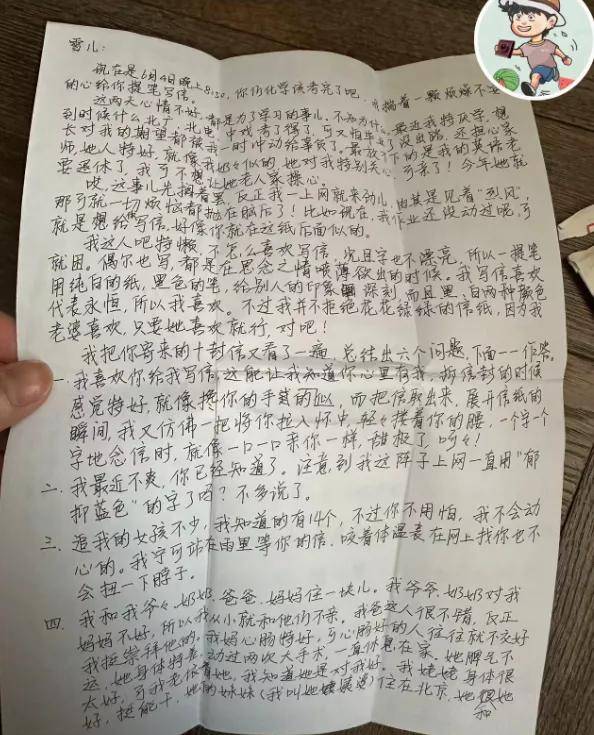 雪儿：
现在是6月4日晚上8:30，你们化学该考完了吧，揣着一颗烦燥不安
的心给你提笔写信。
这两天心情不好，都是为了学习的事儿，不知为什么，最近我特厌学，想
到时候什么北广、北电、中戏考了得了，可又怕毕了没出路，还担心家
长对我的期望都被我一时冲动给辜负了。最放不下的是我的英语老
师，她人特好，就像我奶々似的，她对我特别关心，可亲了！今年她就
要退休了，我可不想让她老人家操心。
唉，这事儿先搁着罢，反正我一上网就来劲儿，尤其是见着“烈风”，
那可就一切烦恼都抛在脑后了！比如现在，我作业还没动过呢，可
就是想给你写信，好像你就在这纸后面似的。
我这人吧特懒，不怎么喜欢写信，况且字也不漂亮，所以一提笔
就困。偶尔也写，都是在思念之情喷薄欲出的时候。我写信喜欢
用纯白的纸，黑色的笔，给别人的印象深刻，而且黑、白两种颜色
代表永恒，所以我喜欢。不过我并不拒绝花花绿绿的信纸，因为我
老婆喜欢，只要她喜欢就行，对吧！
我把你寄来的十封信又看了一遍，总结出六个问题，下面一一作答。
一、我喜欢你给我写信，这能让我知道你心里有我，拆信封的时候
感觉特好，就像搀你的手喊的似，而把信取出来，展开信纸的
瞬间，我又仿佛一把将你拉入怀中，轻々搂着你的腰，一个字一个
字地念信时，就像一口一口亲你一样，甜极了，呵々！
二、我最近不爽，你已经知道了。注意到我这阵子上网一直用“郁
抑蓝色”的字了吗？不多说了。
三、追我的女孩不少，我知道的有14个，不过你不用怕，我不会动
心的。我宁可站在雨里等你的信，咬着体温表在网上找你也不
会扭一下脖子。
四、我和我爷々、奶奶、爸爸、妈妈住一块儿。我爷爷、奶奶对我
妈妈不好，所以我从小就和他们不亲。我爸这人很不错，反正
我挺崇拜他的。我妈心肠特好，可心肠好的人往往就不交好
运，她身体特差，动过两次大手术，一直休息在家。她脾气不
太好，可我老依着她，我知道她是对我好。我姥姥身体很
好，挺能干，她的妹妹（我叫她姨婆）住在北京，她和她